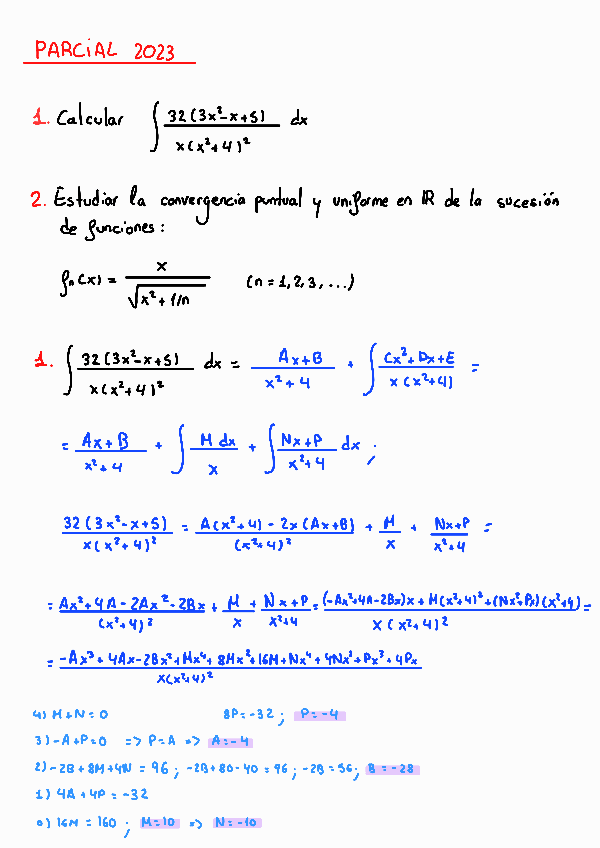 PARCIAL 2023
1. Calcular ∫ 32(3x²-x+5) / x(x²+4)² dx
2. Estudiar la convergencia puntual y uniforme en IR de la sucesión
de funciones:
fₙ(x) = x / √(x²+1/n) (n=1,2,3,...)
1. ∫ 32(3x²-x+5) / x(x²+4)² dx = Ax+B / x²+4 + ∫ Cx²+Dx+E / x(x²+4) =
= Ax+B / x²+4 + ∫ M dx / x + ∫ Nx+P / x²+4 dx ;
32(3x²-x+5) / x(x²+4)² = A(x²+4) - 2x(Ax+B) / (x²+4)² + M / x + Nx+P / x²+4 =
= Ax²+4A-2Ax²-2Bx / (x²+4)² + M / x + Nx+P / x²+4 = (-Ax²+4A-2Bx)x + M(x²+4)² + (Nx²+Px)(x²+4) / x(x²+4)² =
= -Ax³+4Ax-2Bx²+Mx⁴+8Mx²+16M+Nx⁴+4Nx²+Px³+4Px / x(x²+4)²
4) M+N=0 8P=-32 ; P=-4
3) -A+P=0 => P=A => A=-4
2) -2B+8M+4N = 96 ; -2B+80-40 = 96 ; -2B = 56 ; B = -28
1) 4A+4P = -32
0) 16M = 160 ; M=10 => N=-10